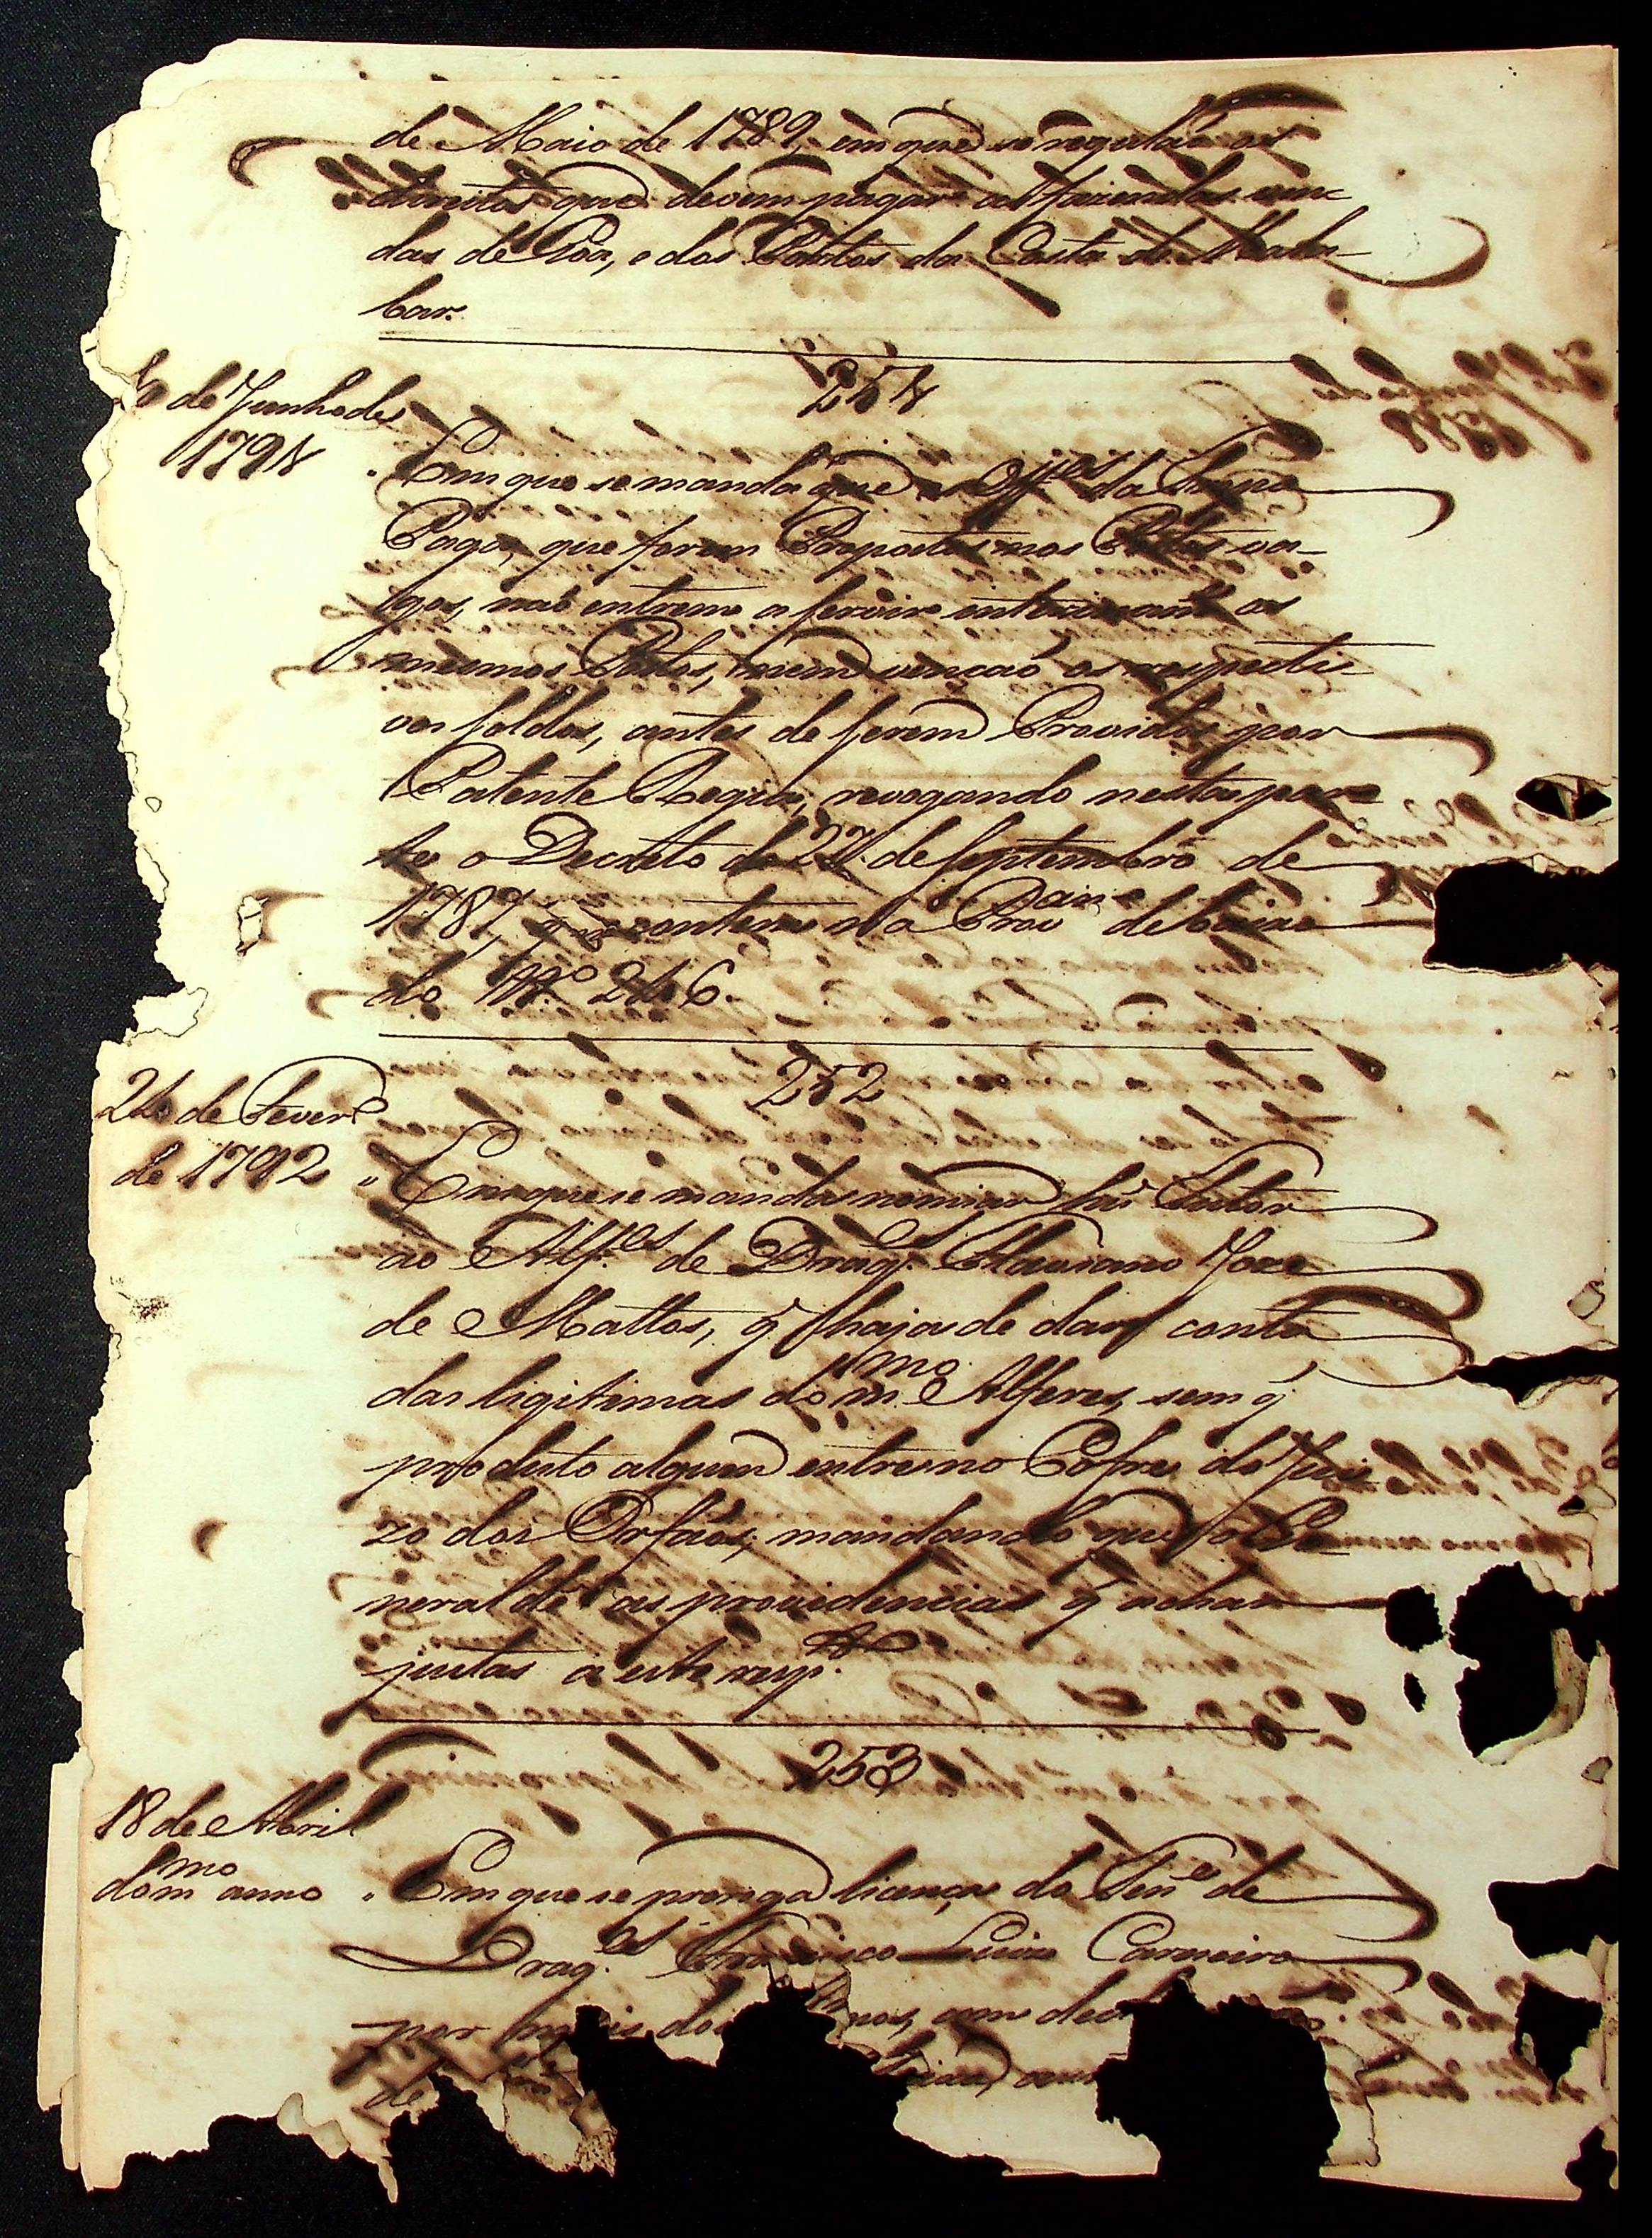 de Maio de 1789, em que se regulaõ os
direitos que devem pagar as fazendas vin
das de Goa, e dos Portos da Costa do Mala-
bar.
251
6 de Junho de
1791
"Em que se manda que os Off.es da Tropa
Paga, que forem Propostos nos Postos va-
gos, naõ entrem a servir interinam.te os
mesmos Postos, nem vençaõ os respecti-
vos soldos, antes de serem Providos por
Patente Regia, revogando nesta par
te o Decreto de 27 de Septembro de
1787, q se contem na Prov.am debaixo
do N.º 246.
252
24 de Fever.º
de 1792
"Em que se manda nomiar hũ Tutor
ao Alf.es de Drag.es Flaviano Joze
de Mattos, q̃ haja de dar conta
das ligitimas do m.mo Alferes, sem q̃
producto algum entre no Cofre do Jui
zo dos Orfaõs; mandando que o Ge
neral dê as providencias q̃ achar
justas a este resp.to
253
18 de Abril
do m.mo anno
"Em que se proroga licença do Ten.e de
Drag.es Francisco Luiz Carneiro
por mais do nos, com decl
de